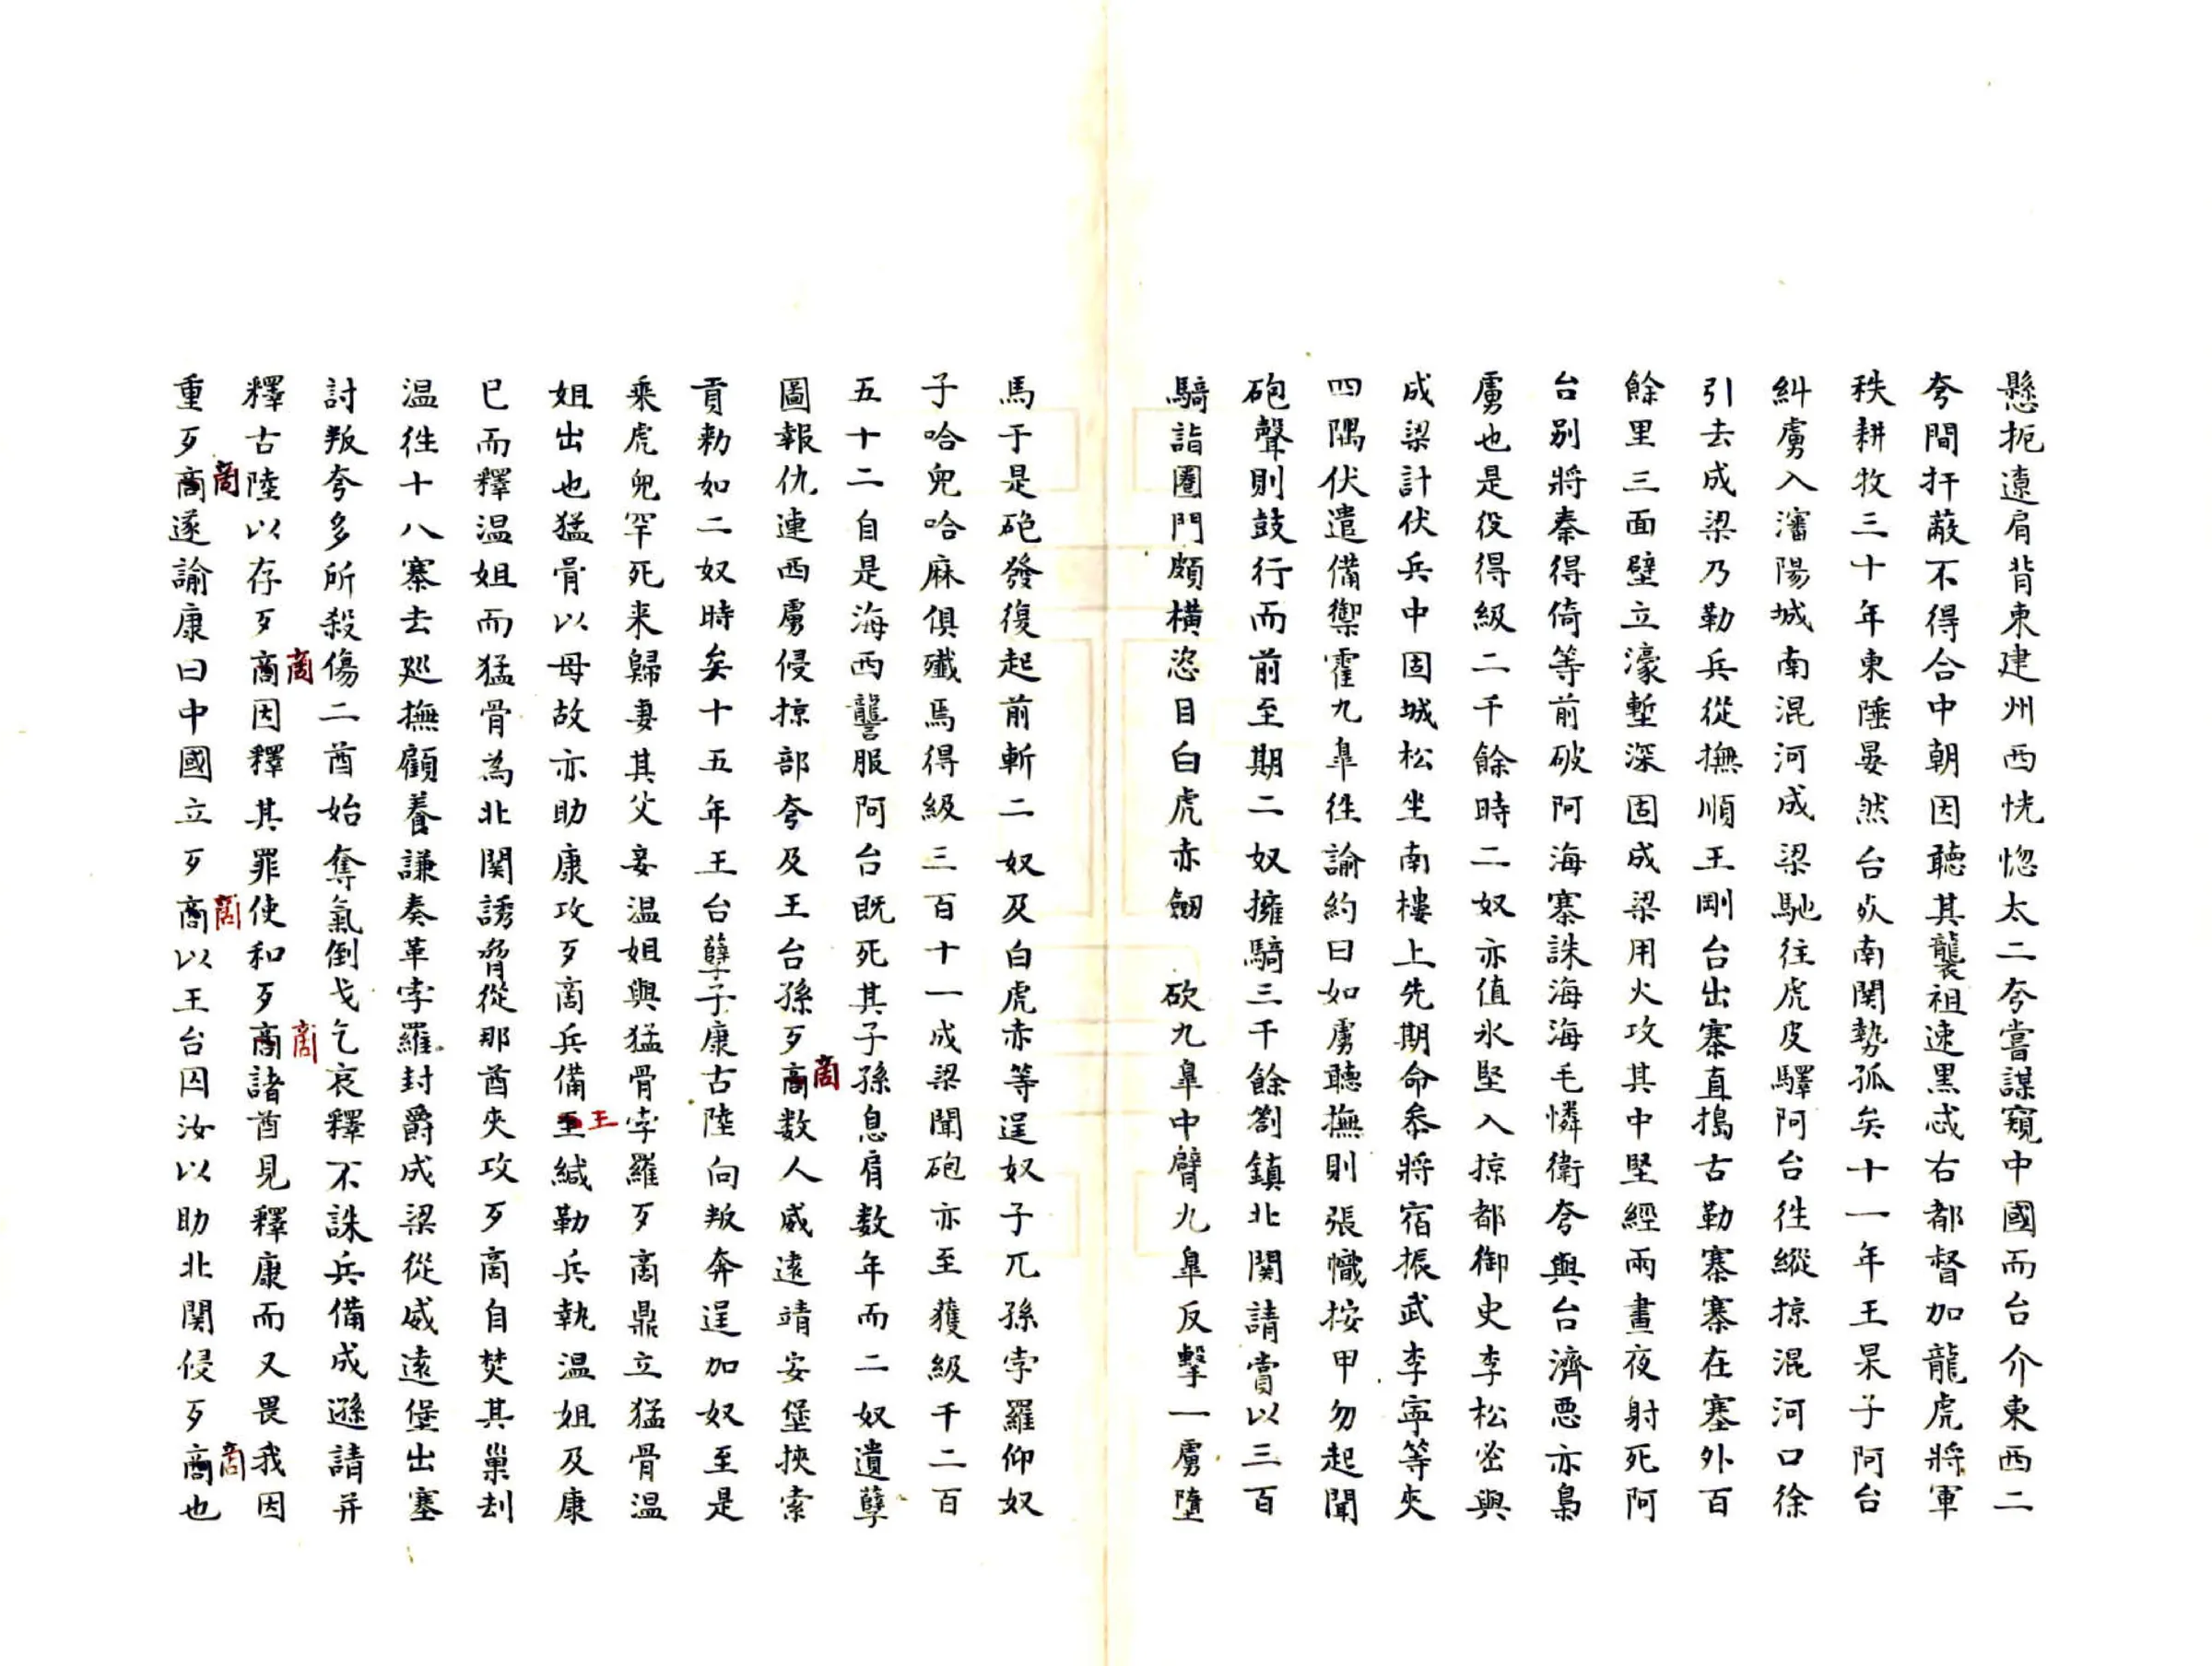 懸扼遼肩背東建州西恍惚太二夸嘗謀窺中國而台介東西二
夸間扞蔽不得合中朝因聽其襲祖速黑忒右都督加龍虎將軍
秩耕牧三十年東陲晏然台歿南関勢孤矣十一年王杲子阿台
糾虜入瀋陽城南混河成梁馳往虎皮驛阿台徃縱掠混河口徐
引去成梁乃勒兵從撫順王剛台出寨直搗古勒寨寨在塞外百
餘里三面壁立濠塹深固成梁用火攻其中堅經兩晝夜射死阿
台别將秦得倚等前破阿海寨誅海海毛憐衛夸與台濟惡亦梟
虜也是役得級二千餘時二奴亦值氷堅入掠都御史李松宻與
成梁計伏兵中固城松坐南樓上先期命叅將宿振武李寧等夾
四隅伏遣備禦霍九臯徃諭約曰如虜聽撫則張幟按甲勿起聞
砲聲則鼓行而前至期二奴擁騎三千餘劄鎮北関請賞以三百
騎詣圏門頗横恣目白虎赤劒 砍九臯中臂九臯反擊一虜墮
馬于是砲發復起前斬二奴及白虎赤等逞奴子兀孫孛羅仰奴
子哈兒哈麻俱殲焉得級三百十一成梁聞砲亦至獲級千二百
五十二自是海西讋服阿台既死其子孫息肩数年而二奴遺孽
圖報仇連西虜侵掠部夸及王台孫歹商商数人威逺靖安堡挾索
貢勑如二奴時矣十五年王台孽子康古陸向叛奔逞加奴至是
乘虎兒罕死来歸妻其父妾温姐與猛骨孛羅歹商鼎立猛骨温
姐出也猛骨以母故亦助康攻歹商兵備王王緘勒兵執温姐及康
已而釋温姐而猛骨為北関誘脅從那酋夾攻歹商自焚其巢刦
温徃十八寨去廵撫顧養謙奏革孛羅封爵成梁從威逺堡出塞
討叛夸多所殺傷二酋始奪氣倒戈乞哀釋不誅兵備成遜請并
釋古陸以存歹商商因釋其罪使和歹商商諸酋見釋康而又畏我因
重歹商商遂諭康曰中國立歹商商以王台囚汝以助北関侵歹商商也